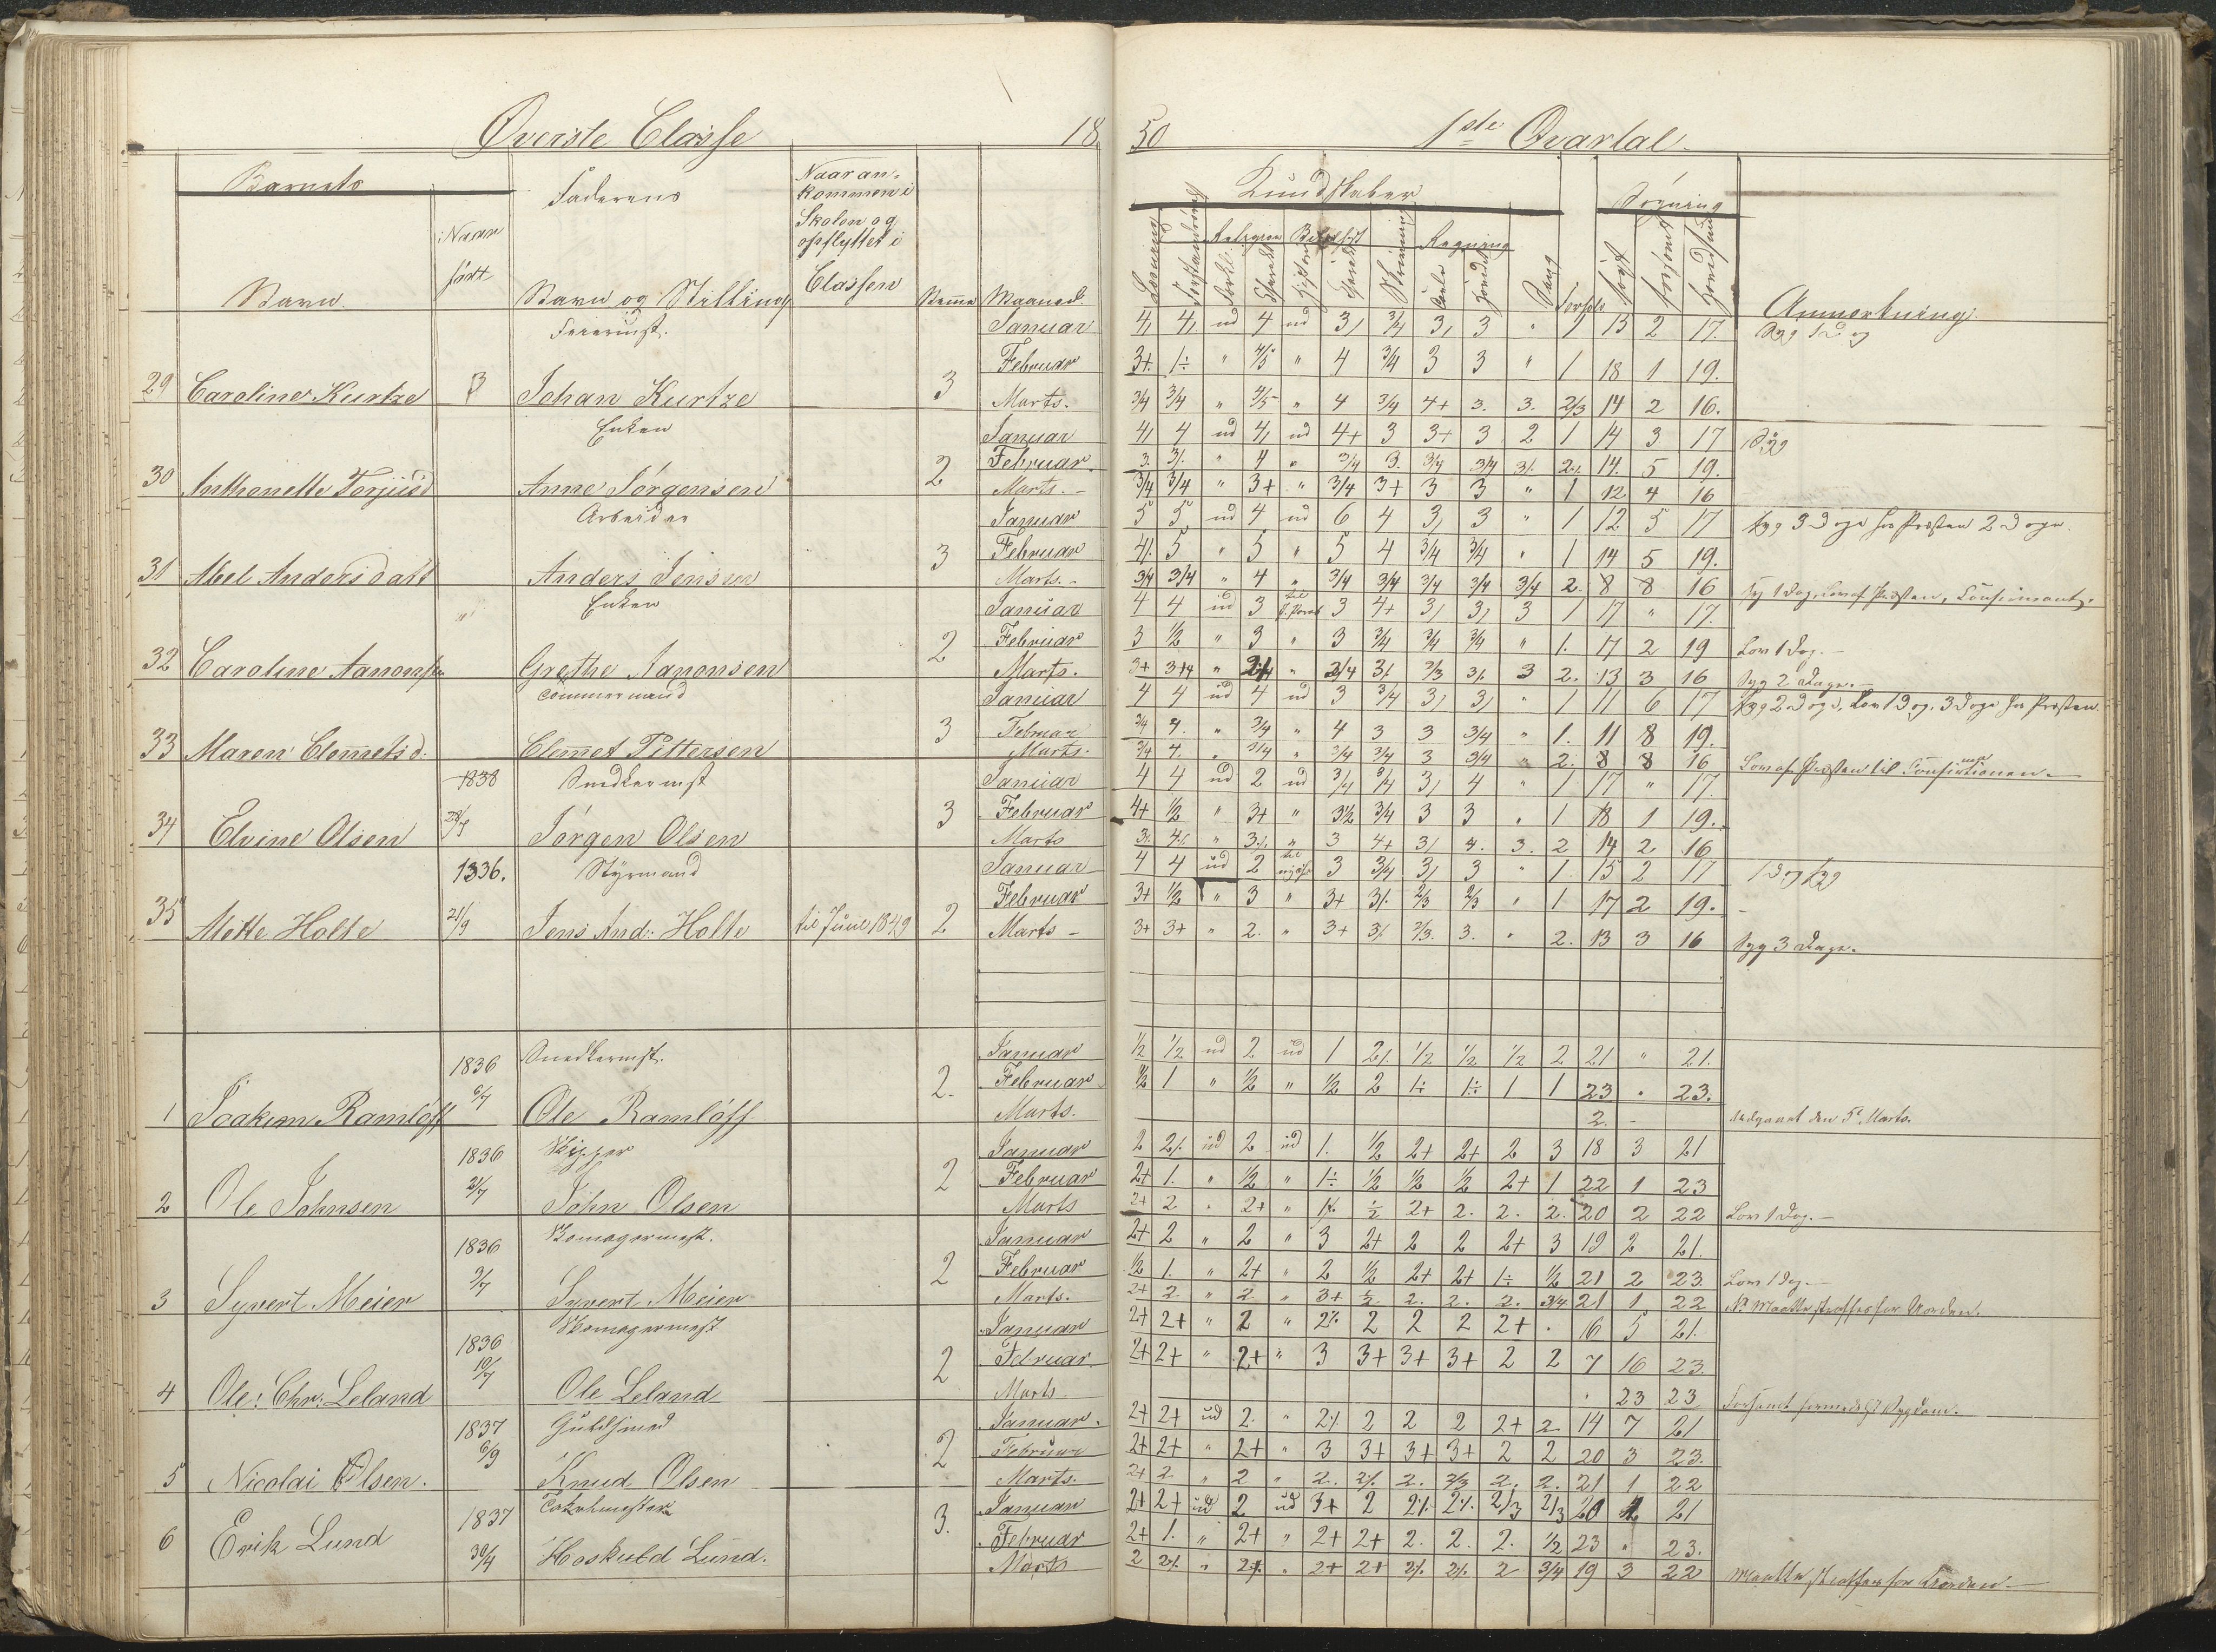 Øverste Classe 18
50 1ste Qvartal.
Barnets
Faderens
Naar an-
kommen i
Skolen og
opflyttet i
Classen
Naar
født
Navn.
Navn og Stilling
Maaned.
Kundskaber
Søgning
Religion
Regning
Sang
Anmærkning.
Januar 4, 4, ud 4 ud 3, 3/4 3, 3 " 1 15 2 17.
Februar 3+. 1÷ " 4/5 " 4 3/4 3 3 " 1 18 1 19.
29 Caroline Kurtze Johan Kurtze 3 Marts. 3/4 3/4 " 4/5 " 4 3/4 4+ 3. 3. 2/3 14 2 16.
Enken Januar 4, 4 ud 4, ud 4+ 3 3+ 3 2 1 14 3 17 Syg
Februar. 3. 3/. " 4 " 3/4 3. 3/4 3/4 3/. 2/. 14. 5 19.
30 Anthonette Torjusd Anne Jørgensen 2 Marts. 3/4 3/4 " 3+ " 3/4 3+ 3 3 " 1 12 4 16
Arbeider Januar 5 5 ud 4 ud 6 4 3, 3 " 1 12 5 17 Syg 3 Dage hos Præsten 2 Dage.
Februar 4/. 5 " 5 " 5 4 3/4 3/4 " 1 14 5 19.
31 Abel Andersdatt Anders Jensen 3 Marts. 3/4 3/4 " 4 " 3/4 3/4 3/4 3/4 3/4 2. 8 8 16
Enken Januar 4 4 ud 3 3 4+ 3, 3, 3 1 17 " 17.
Februar 3 1/2 " 3 " 3 3/4 3/4 3/4 " 1. 17 2 19 Lov 1 Dag.
32 Caroline Aanonsen Grethe Aanonsen 2 Marts. 3+ 3+4 " " 3/4 3/. 2/3 3/. 3 2. 13 3 16 Syg 2 Dage.
Tømmermand Januar 4 4 ud 4 ud 3 3/4 3, 3, " 1 11 6 17 Syg 2 Dage, Lov 1 Dag, 3 Dage hos Præsten.
Februar 3/4 4. " 3/4 " 4 3 3 3/4 " 1. 11 8 19.
33 Maren Clemetsd: Clemet Pettersen 3 Marts. 3/4 4. " 3/4 " 3/4 3/4 3 3/4 " 2. 8 8 16
1838 Snedkermst Januar 4 4 ud 2 ud 3/4 3/4 3, 4 " 1 17 " 17.
Februar 4+ 1/2 " 3+ " 3 1/2 3/4 3 3 " 1 18 1 19.
34 Elvine Olsen Jørgen Olsen 3 Marts 3/. 4/. " 3/. " 3 4+ 3/. 4. 3. 2 14 2 16
1836. Styrmand Januar 4 4 ud 2 3 3/4 3, 3 " 1. 15 2 17 1 Dag syg
Februar 3+ 1/2 " 3 " 3+ 3/. 2/3 2/3 " 1 17 2 19.
35 Mette Holte 21/9 Jens And: Holte til Juni 1849 2 Marts 3+ 3+ " 2. " 3+ 3/. 2/3. 3. " 2. 13 3 16 Syg 3 Dage.
1836 Snedkermst. Januar 1/2 1/2 ud 2 ud 1 2/. 1/2 1/2 1/2 2 21 " 21.
6/7 Februar 1/2 1 " 1/2 " 1/2 2 1÷ 1÷ 1 1 23 " 23.
1 Joakim Ramløff Ole Ramløff 2. Marts. 2. Udgaaet den 5te Marts.
1836 Skipper Januar 2 2/. ud 2 ud 1. 1/2 2+ 2+ 2 3 18 3 21
21/7 Februar 2+ 1. " 1/2 " 1÷ 1/2 1/2 1/2 2+ 1 22 1 23
2 Ole Johnsen John Olsen 2 Marts 2+ 2 " 2+ " 1/2 2+ 2. 2. 2. 20 2 22 Lov 1 Dag.
1836 Skomagermest. Januar 2+ 2 " 2 " 3 2+ 2 2 2+ 3 19 2 21.
9/7 Februar 1/2 1. " 2+ " 2 1/2 2+ 2+ 1÷ 1/2 21 2 23 Lov 1 Dag.
3 Syvert Meier Syvert Meier 2 Marts. 2+ 2. " 2 " 3+ 1/2 2. 2. 2. 3/4 21 1 22 Maatte straffes for Uorden.
1836 Skomagermest Januar 2+ 2+ " 2 " 2/. 2 2 2 2+ . 16 5 21.
10/7 Februar. 2+ 2+ " 2+ " 3 3+ 3+ 3+ 2 2 7 16 23.
4 Ole: Chr: Leland Ole Leland 2 Marts. 23 23 Forsømt formedelst Sygdom.
1837 Guldsmed Januar. 2+ 2+ ud 2. " 2/. 2 2 2 2+ 2 14 7 21
6/9 Februar 2+ 2+ " 2+ " 3 3+ 3+ 3+ 2 2 20 3 23.
5 Nicolai Olsen. Knud Olsen 2 Marts. 2+ 2. " 2 " 2. 2/. 2. 2/3 2. 2. 21 1 22
1837 Januar 2+ 2+ ud 2 ud 3+ 2 2/. 2/. 2/3 2/3 20 1 21
6 Erik Lund Februar 2+ 1. " 2+ " 2+ 2+ 2. 2. 2. 1/2 23 " 23.
30/4 Hoskuld Lund. 3. Marts 2 2/. " 2/. " 2+ 2+ 2/. 2/. 2 3/4 19 3 22 Maatte straffes for Uorden